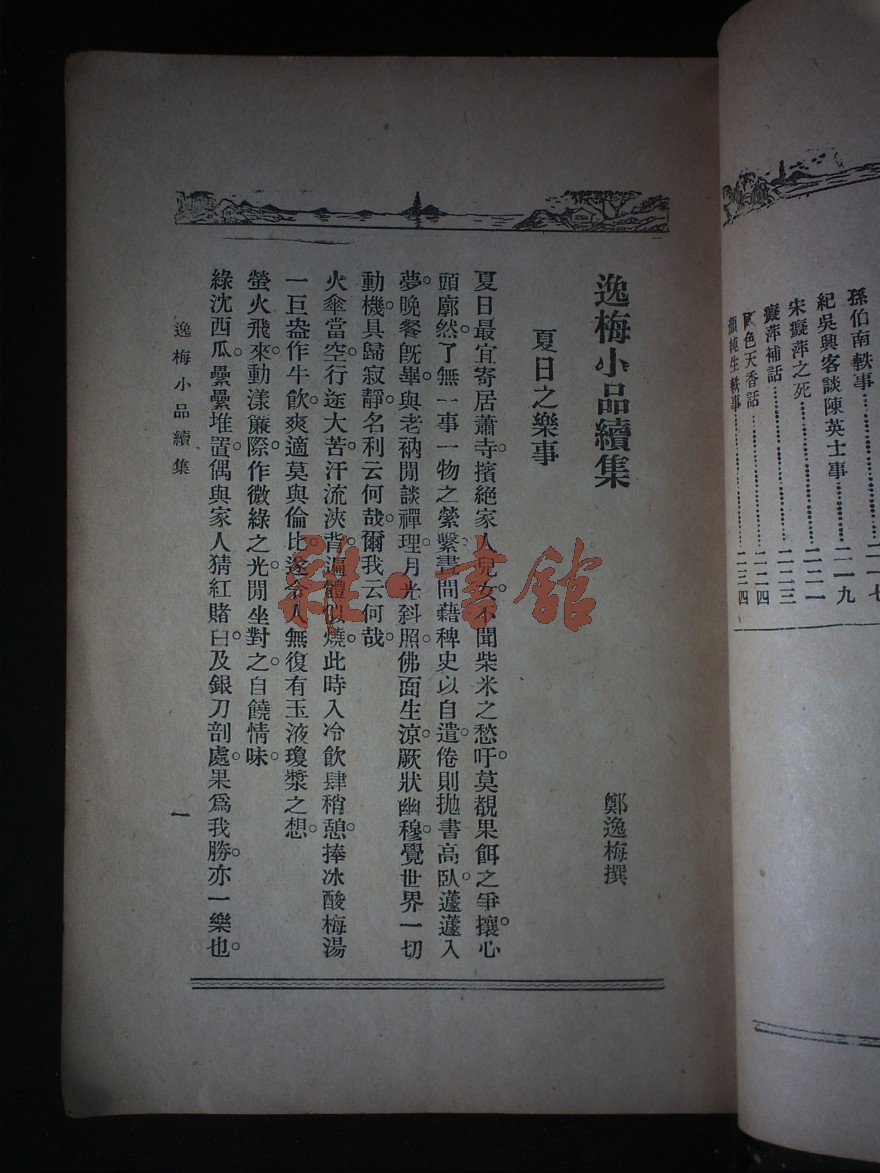 孫伯南軼事……二一七
紀吳興客談陳英士事……二一九
宋癡萍之死……二二一
癡萍補話……二二三
色天香話……二二四
純生軼事……二三四
逸梅小品續集
鄭逸梅撰
夏日之樂事
夏日最宜寄居蕭寺。擯絕家人兒女。不聞柴米之愁吁。莫覩果餌之爭攘。心
頭廓然。了無一事一物之縈繫。晝間藉稗史以自遣。倦則拋書高臥。蘧蘧入
夢。晚餐旣畢。與老衲閒談禪理。月光斜照。佛面生涼。厥狀幽穆。覺世界一切
動機。具歸寂靜。名利云何哉。爾我云何哉。
火傘當空。行迳大苦。汗流浹背。遍體似燒。此時入冷飲肆稍憩。捧冰酸梅湯
一巨盎作牛飲。爽適莫與倫比。遂令人無復有玉液瓊漿之想。
螢火飛來。動漾簾際。作微綠之光。閒坐對之。自饒情味。
綠沈西瓜。纍纍堆置。偶與家人猜紅賭白。及銀刀剖處。果爲我勝。亦一樂也。
逸梅小品續集
一
雜·書館